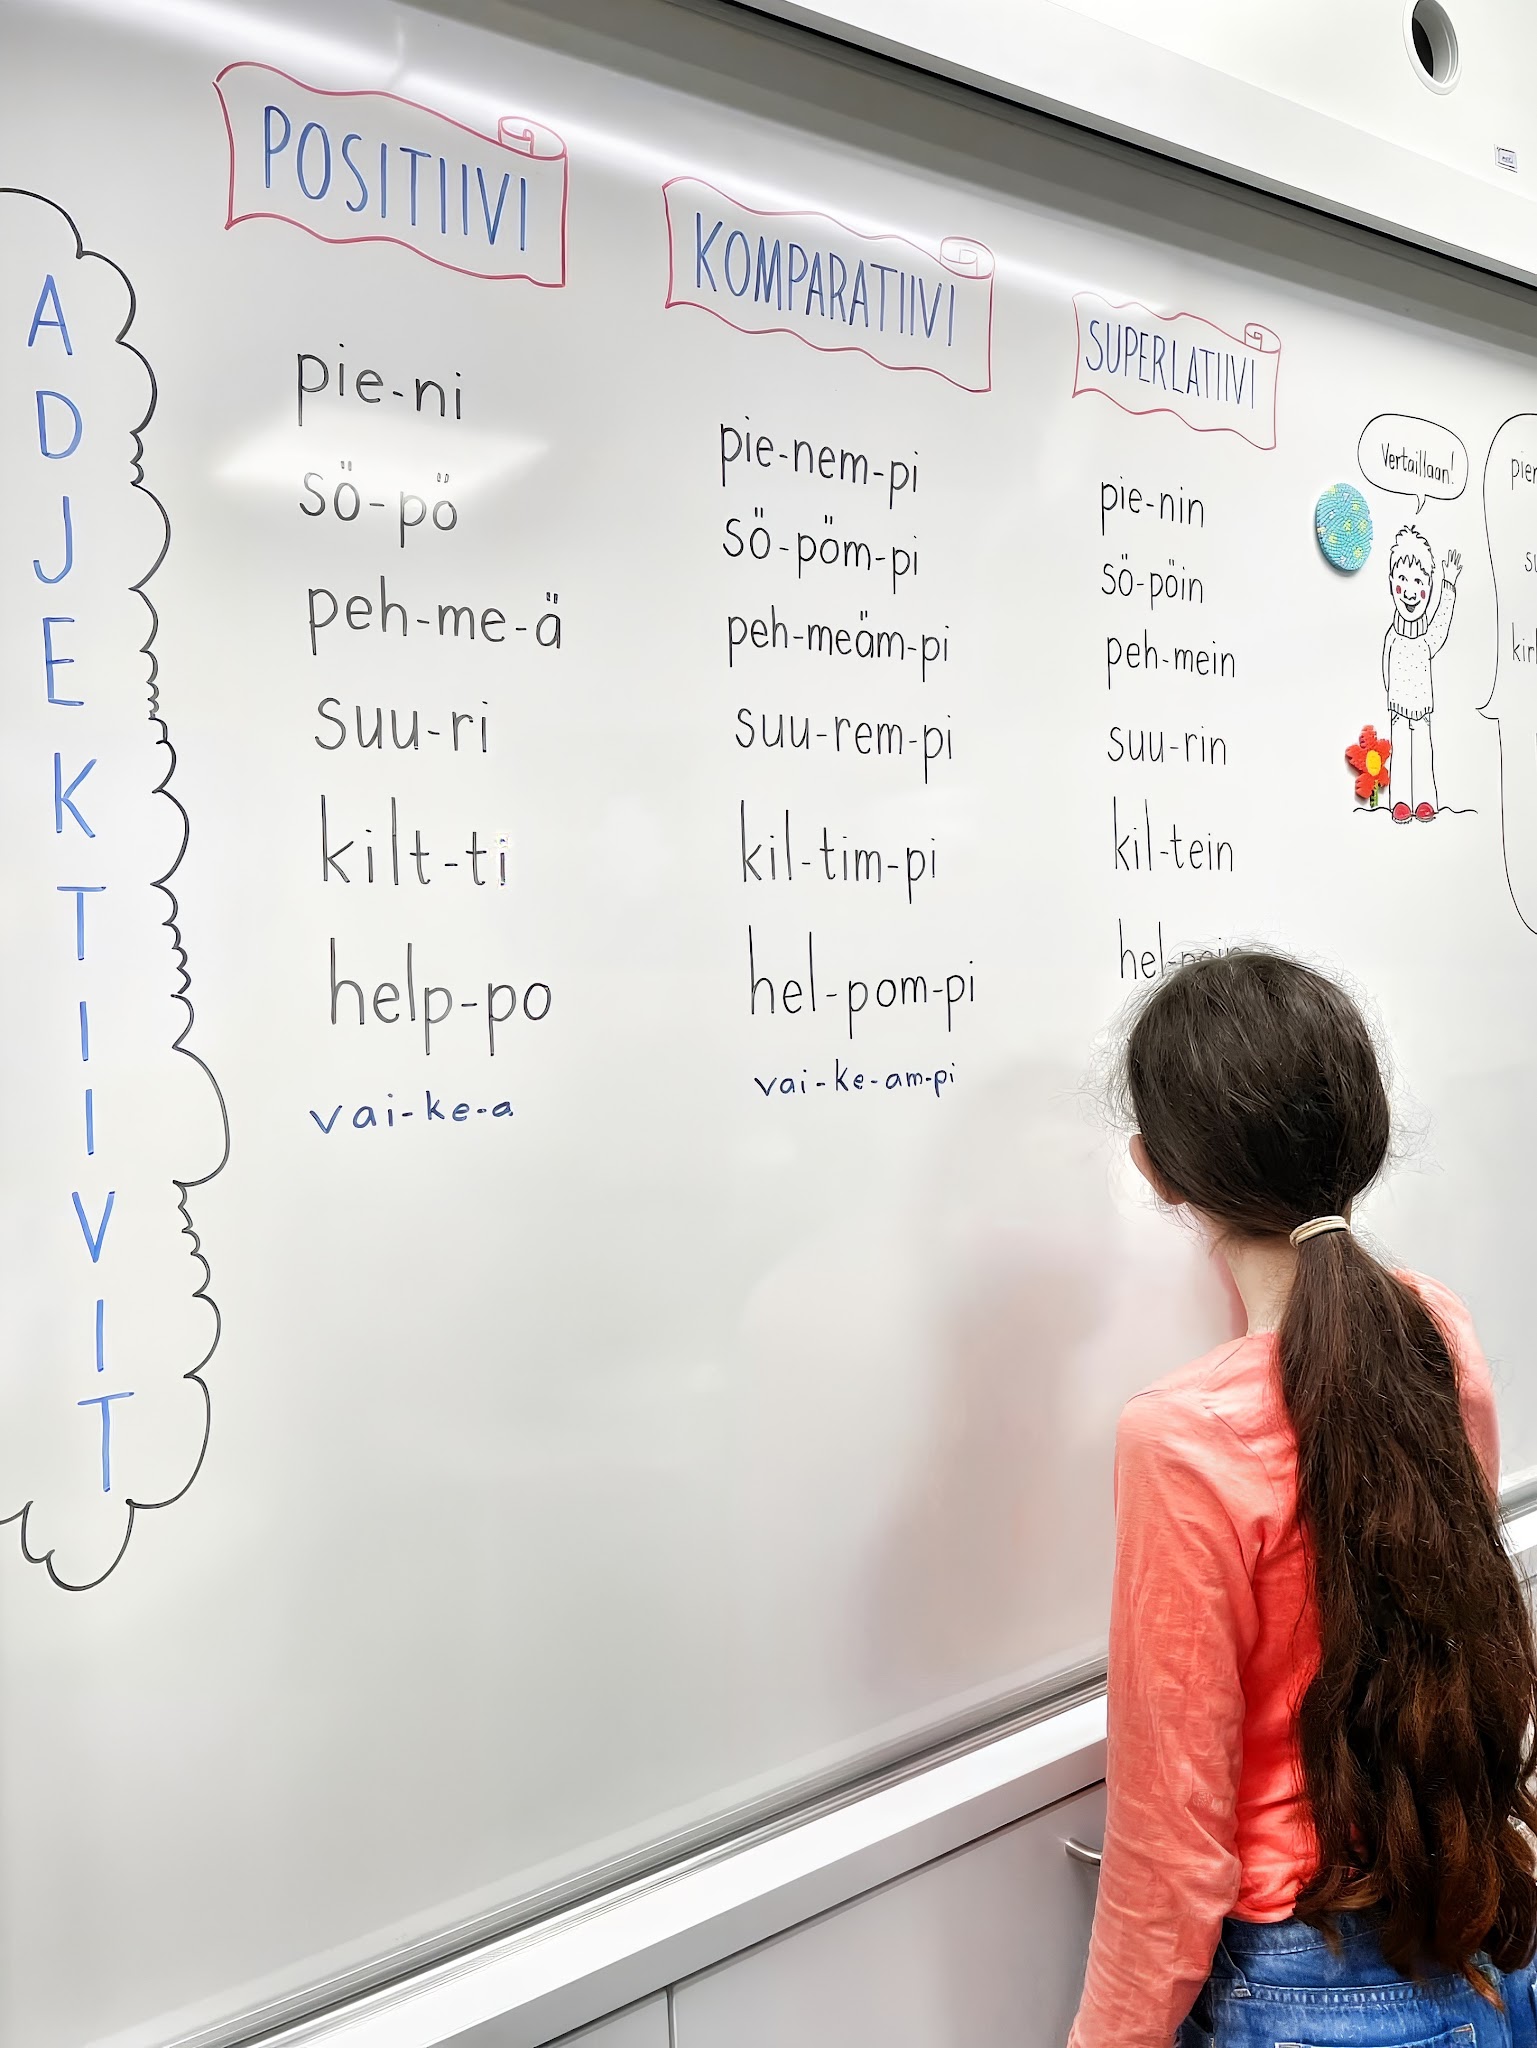 ADJEKTIIVIT
POSITIIVI
pie-ni
sö-pö
peh-me-ä
suu-ri
kilt-ti
help-po
vai-ke-a
KOMPARATIIVI
pie-nem-pi
sö-pöm-pi
peh-meäm-pi
suu-rem-pi
kil-tim-pi
hel-pom-pi
vai-ke-am-pi
SUPERLATIIVI
pie-nin
sö-pöin
peh-mein
suu-rin
kil-tein
Vertaillaan!